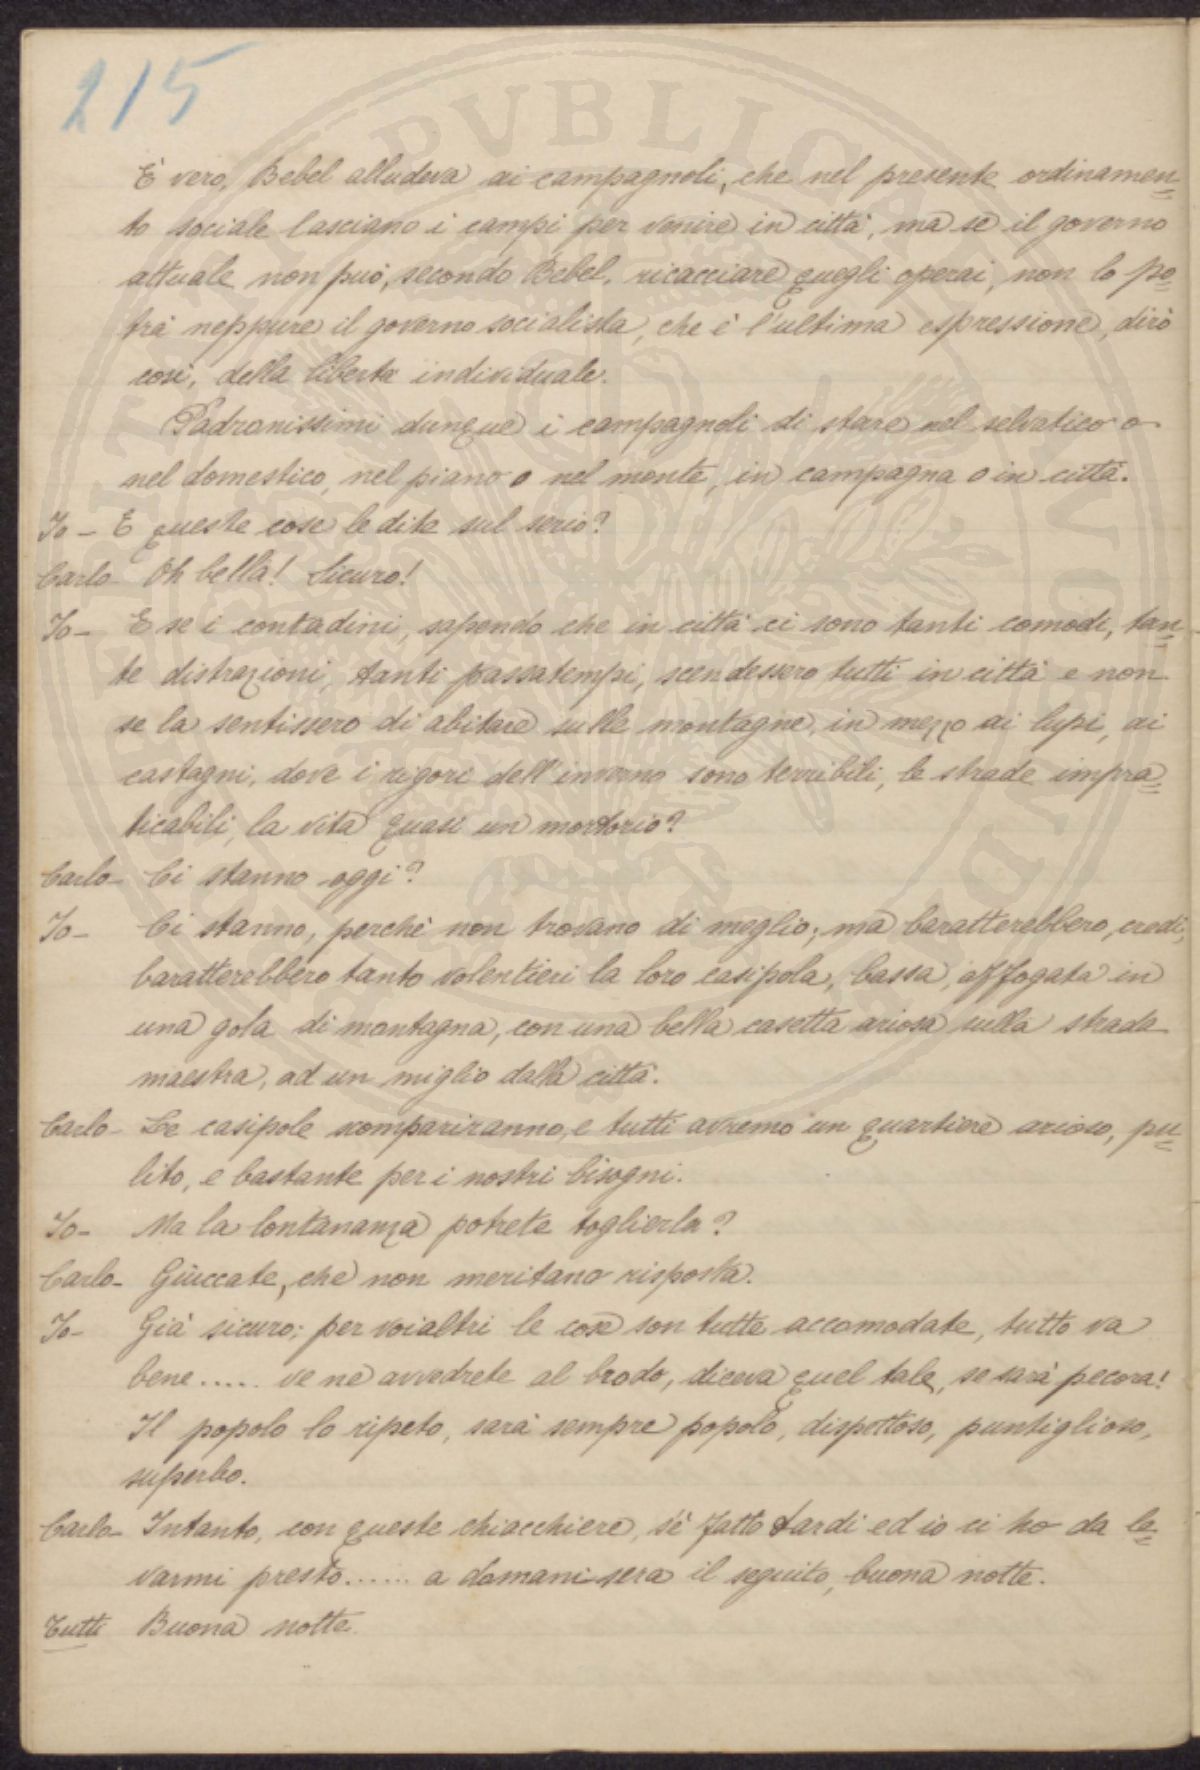 215
È vero, Bebel alludeva ai campagnoli, che nel presente ordinamen=
to sociale lasciano i campi per venire in città, ma se il governo
attuale non può, secondo Bebel, ricacciare quegli operai, non lo po=
trà neppure il governo socialista, che è l'ultima espressione, dirò
così, della libertà individuale.
Padronissimi dunque i campagnoli di stare nel selvatico o
nel domestico, nel piano o nel monte, in campagna o in città.
Io - E queste cose le dite sul serio?
Carlo - Oh bella! Sicuro!
Io - E se i contadini, sapendo che in città ci sono tanti comodi, tan=
te distrazioni, tanti passatempi, scendessero tutti in città e non
se la sentissero di abitare sulle montagne, in mezzo ai lupi, ai
castagni, dove i rigori dell'inverno sono terribili, le strade impra=
ticabili, la vita quasi un mortorio?
Carlo - Ci stanno oggi?
Io - Ci stanno, perchè non trovano di meglio; ma baratterebbero, credi,
baratterebbero tanto volentieri la loro casipola, bassa, affogata in
una gola di montagna, con una bella casetta ariosa sulla strada
maestra, ad un miglio dalla città.
Carlo - Le casipole scompariranno, e tutti avremo un quartiere arioso, pu=
lito, e bastante per i nostri bisogni.
Io - Ma la lontananza potrete toglierla?
Carlo - Giuccate, che non meritano risposta.
Io - Già sicuro; per voialtri le cose son tutte accomodate, tutto va
bene..... ve ne avvedrete al brodo, diceva quel tale, se sarà pecora!
Il popolo lo ripeto, sarà sempre popolo, dispettoso, puntiglioso,
superbo.
Carlo - Intanto, con queste chiacchiere, s'è fatto tardi ed io ci ho da le=
varmi presto...... a domani sera il seguito, buona notte.
Tutti Buona notte.